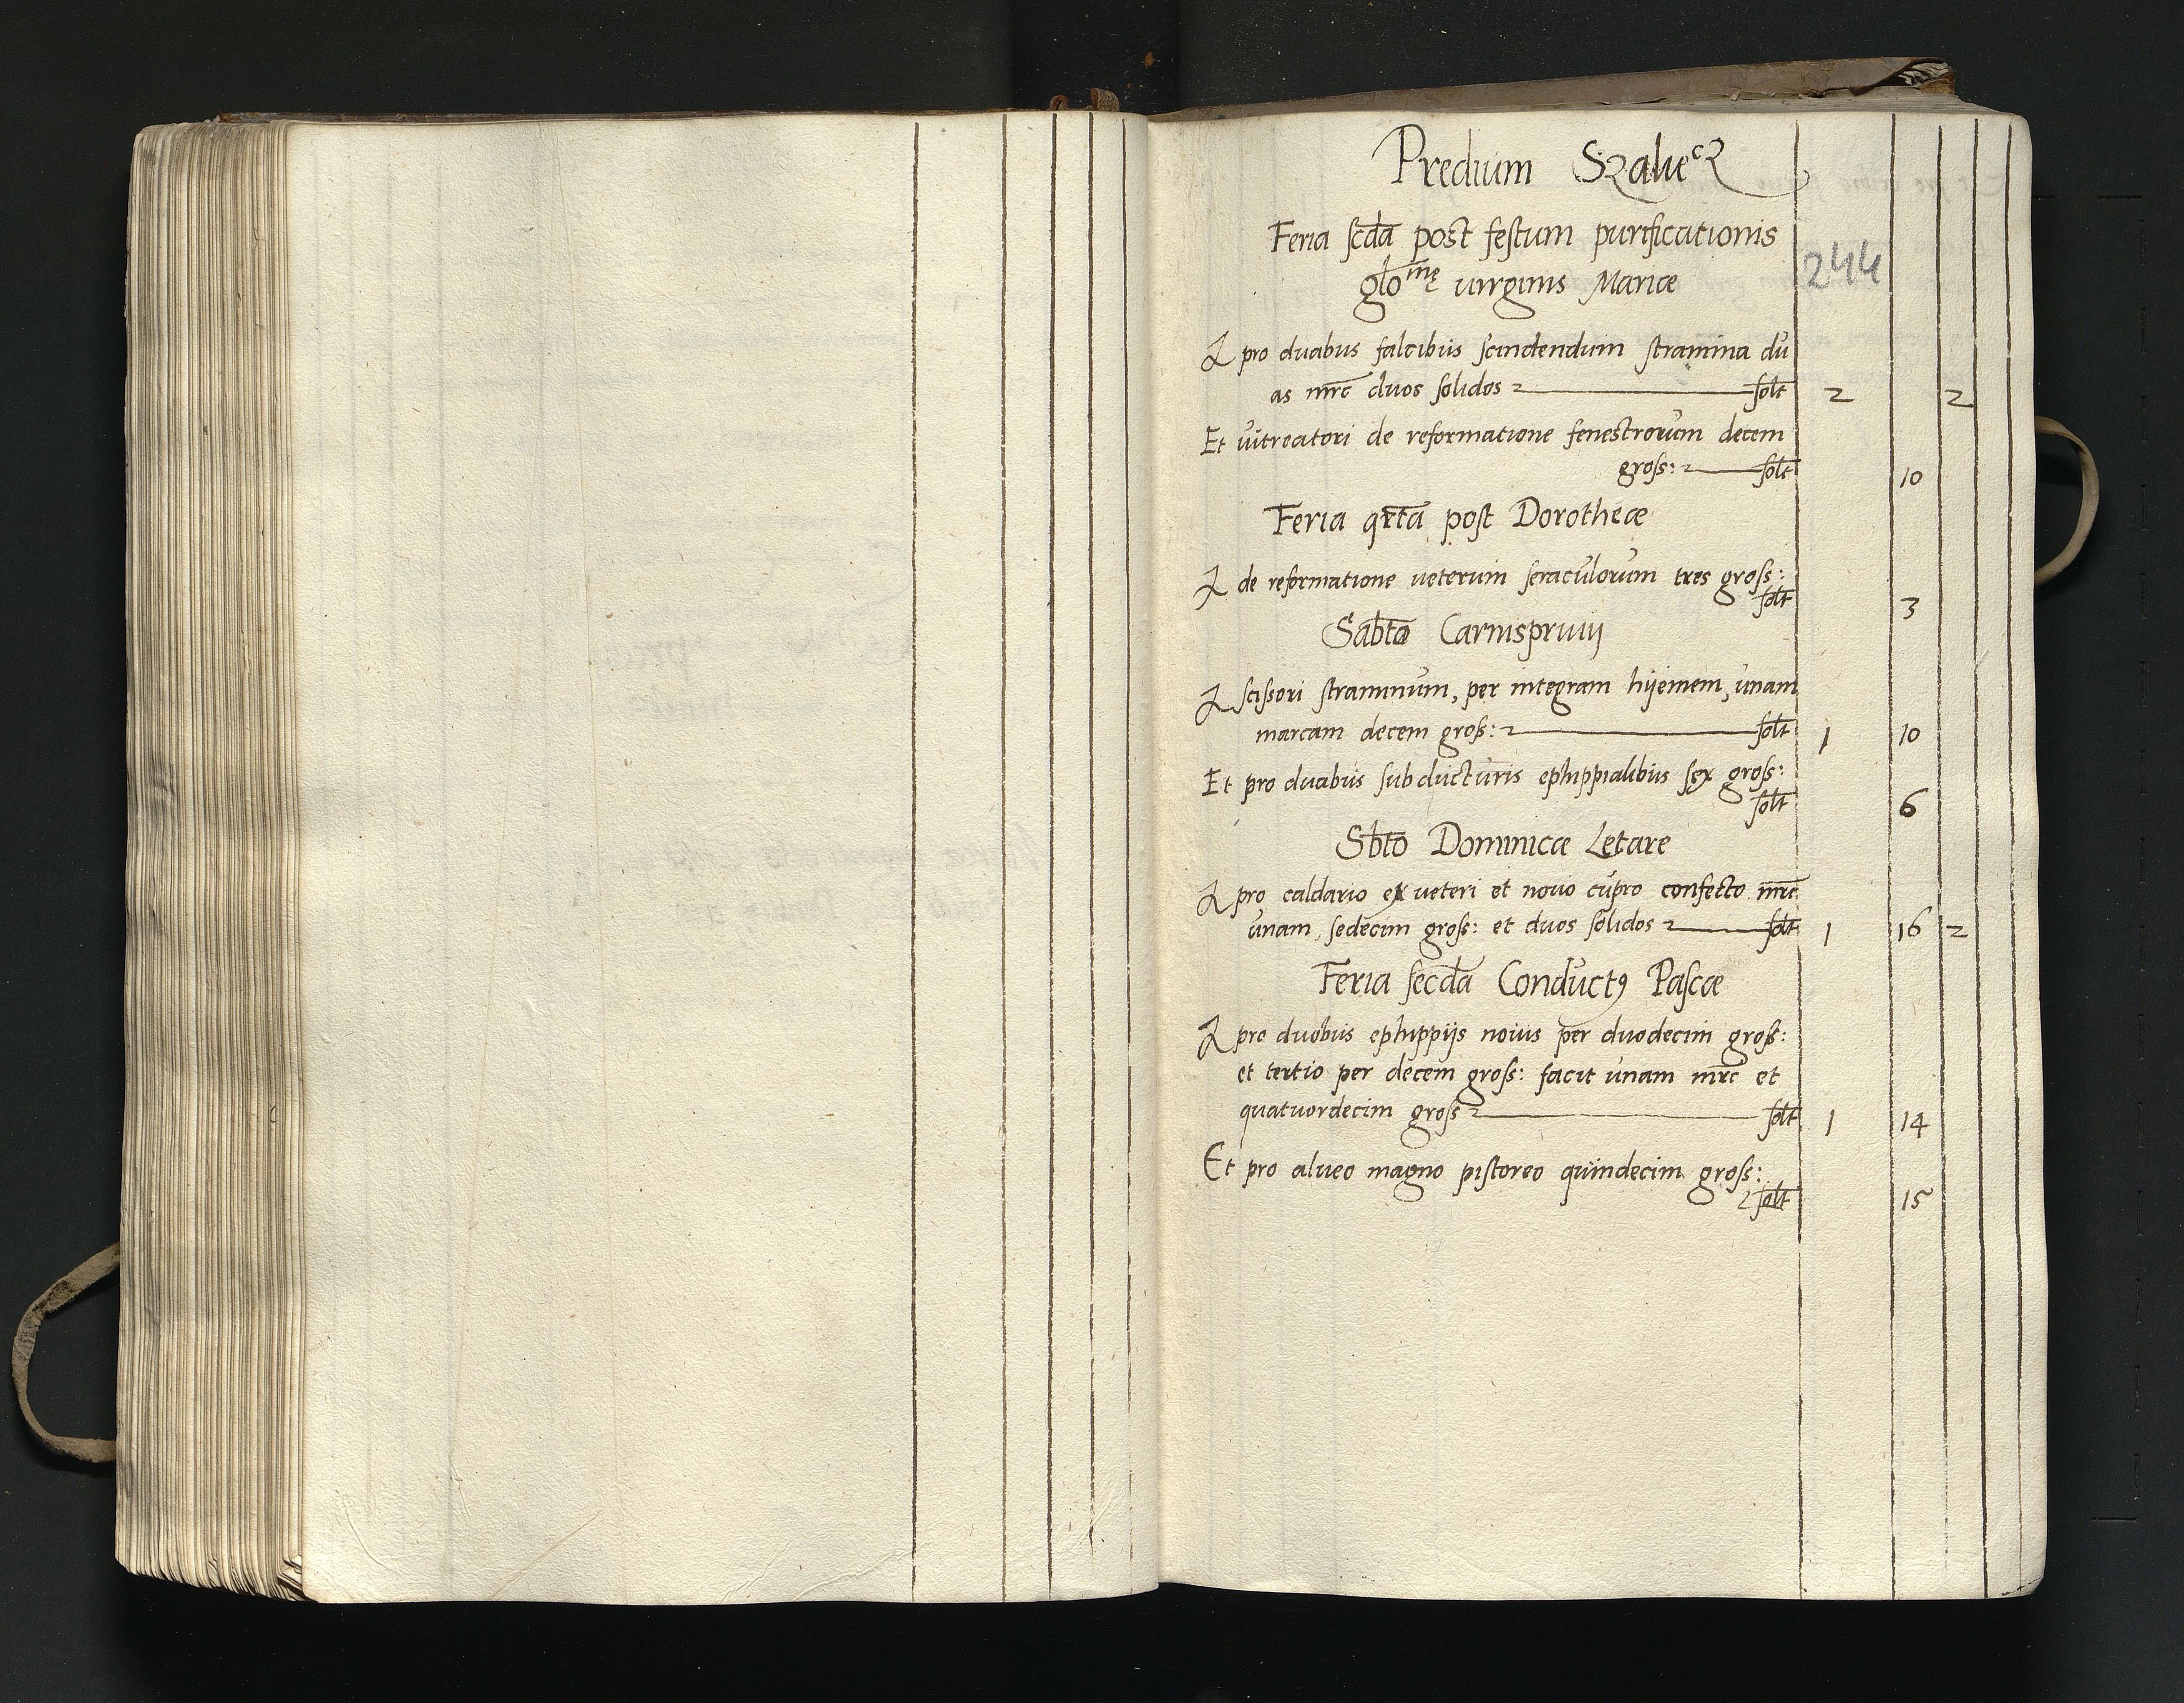 Predium Szalecz
Feria scda post festum purificationis
244
glomę virginis Mariæ
pro duabus falcibus scindendum stramina du
as mrc duos solidos solt 2 2
Et vitreatori de reformatione fenestrorum decem
gross: solt 10
Feria qrta post Dorotheæ
de reformatione veterum seraculorum tres gross:
solt 3
Sabto Carnisprivij
scissori straminum, per integram hyemem, unam
marcam decem gross: solt 1 10
Et pro duabus subducturis ephippialibus sex gross:
solt 6
Sbto Dominicæ Letare
pro caldario ex veteri et novo cupro confecto mrc
unam, sedecim gross: et duos solidos solt 1 16 2
Feria secda Conductꝯ Pascæ
pro duobus ephippijs novis per duodecim gross:
et tertio per decem gross: facit unam mrc et
quatuordecim gross solt 1 14
Et pro alveo magno pistoreo quindecim gross:
solt 15